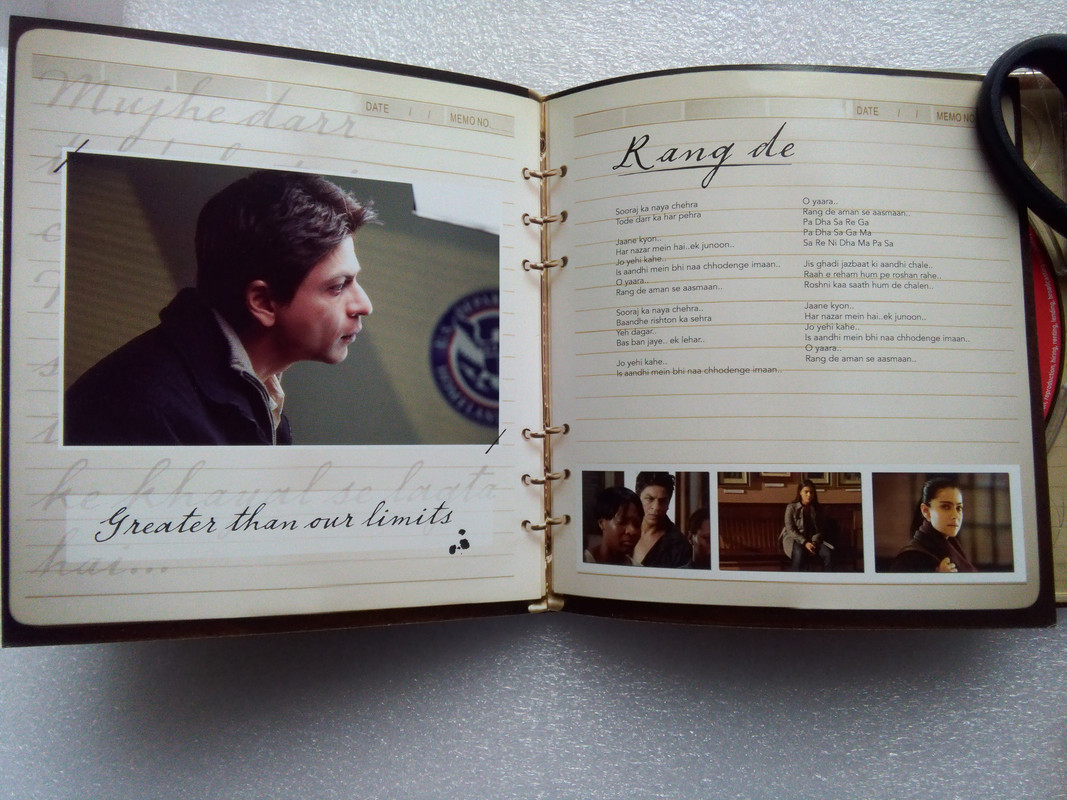 Mujhe darr
DATE / /
MEMO NO.
ke khayal se lagta
hai...
Greater than our limits
DATE / /
MEMO NO
Rang de
Sooraj ka naya chehra
Tode darr ka har pehra
Jaane kyon..
Har nazar mein hai..ek junoon..
Jo yehi kahe..
Is aandhi mein bhi naa chhodenge imaan..
O yaara..
Rang de aman se aasmaan..
Sooraj ka naya chehra..
Baandhe rishton ka sehra
Yeh dagar..
Bas ban jaye.. ek lehar..
Jo yehi kahe..
Is aandhi mein bhi naa chhodenge imaan..
O yaara..
Rang de aman se aasmaan..
Pa Dha Sa Re Ga
Pa Dha Sa Ga Ma
Sa Re Ni Dha Ma Pa Sa
Jis ghadi jazbaat ki aandhi chale..
Raah e reham hum pe roshan rahe..
Roshni kaa saath hum de chalen..
Jaane kyon..
Har nazar mein hai..ek junoon..
Jo yehi kahe..
Is aandhi mein bhi naa chhodenge imaan..
O yaara..
Rang de aman se aasmaan..
reproduction, hiring, renting, lending,